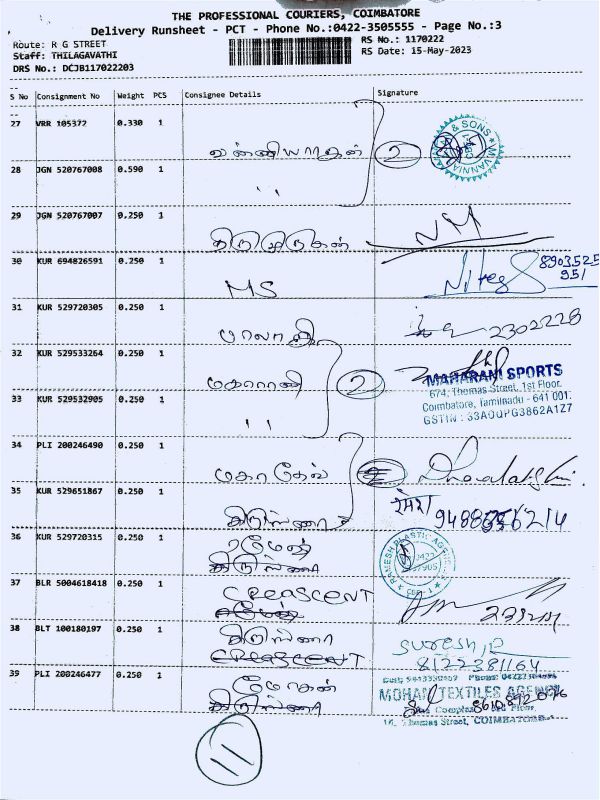 THE PROFESSIONAL COURIERS, COIMBATORE
Delivery Runsheet - PCT - Phone No.:0422-3505555 - Page No.:3
Route: R G STREET RS No.: 1170222
Staff: THILAGAVATHI RS Date: 15-May-2023
DRS No.: DCJB117022203
S No Consignment No Weight PCS Consignee Details Signature
27 VRR 105372 0.330 1
& SONS
2
28 JGN 520767008 0.590 1 ''
29 JGN 520767007 0.250 1
திருமுருகன் NM
30 KUR 694826591 0.250 1 8903525
MS Nitesh 951
31 KUR 529720305 0.250 1
பாலாஜி 2302228
32 KUR 529533264 0.250 1
மகாராணி 2 MAHARANI SPORTS
674, Thomas Street, 1st Floor,
33 KUR 529532905 0.250 1 Coimbatore, Tamilnadu - 641 001.
'' GSTIN : 33AOUPG3862A1Z7
34 PLI 200246490 0.250 1
35 KUR 529651867 0.250 1
கிருஸ்ணா
36 KUR 529720315 0.250 1
ரமேஷ் RAMESH PLASTIC AGENCY
கிருஸ்ணா
37 BLR 5004618418 0.250 1
CREASCENT
38 BLT 100180197 0.250 1
கிருஸ்ணா Suresh.R
CREASCENT 8122381164
39 PLI 200246477 0.250 1
மோகன் MOHAN TEXTILES AGENCY
கிருஸ்ணா
Thomas Street, COIMBATORE
11